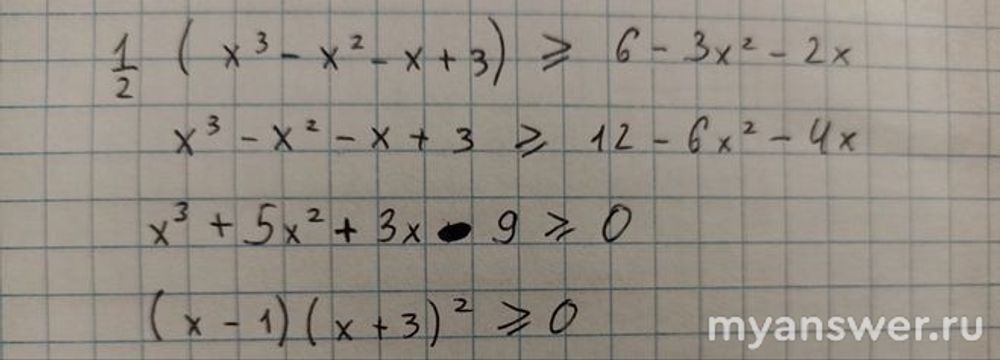 1/2 (x³ - x² - x + 3) ⩾ 6 - 3x² - 2x
x³ - x² - x + 3 ⩾ 12 - 6x² - 4x
x³ + 5x² + 3x - 9 ⩾ 0
(x - 1)(x + 3)² ⩾ 0
myanswer.ru